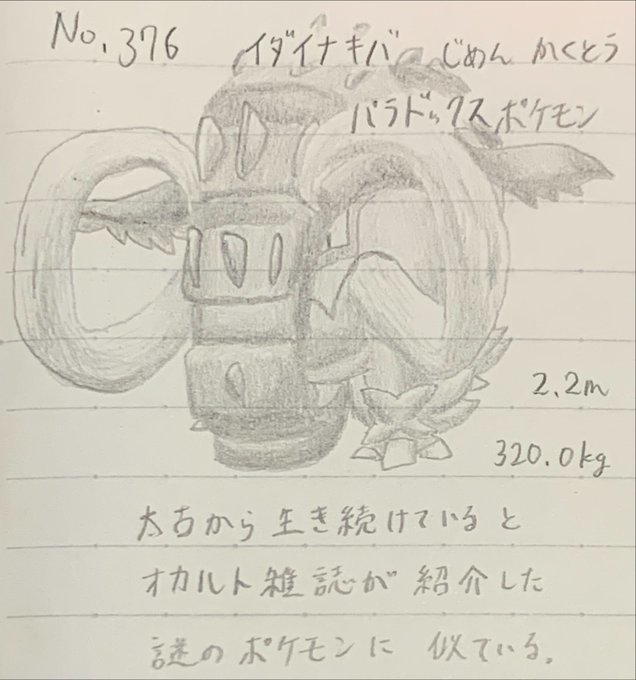 No.376 イダイナキバ じめん かくとう
パラドックスポケモン
2.2m
320.0kg
太古から生き続けていると
オカルト雑誌が紹介した
謎のポケモンに似ている。